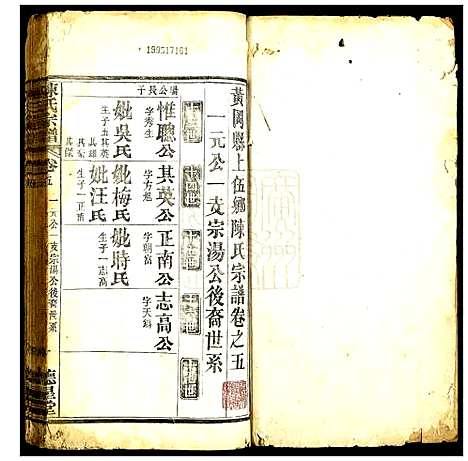 黃岡縣上伍鄉陳氏宗譜卷之五
一元公一支宗湯公後裔世系
十三世
十四世
十五世
十六世
公長子
惟聰公
字秀生
妣吳氏
生子五其英
其雄
其傑
其英公
字方旭
妣梅氏
妣汪氏
生子一正南
正南公
字朝富
妣時氏
生子一志高
志高公
字天錫
陳氏宗譜
卷五
一元公一支宗湯公後裔世系
德星堂
199517161